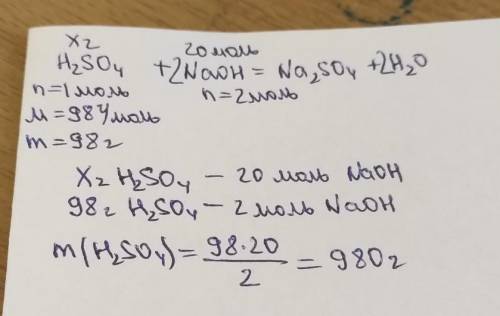 x г 20 моль
H₂SO₄ + 2NaOH = Na₂SO₄ + 2H₂O
n = 1 моль n = 2 моль
M = 98 г/моль
m = 98 г
X г H₂SO₄ — 20 моль NaOH
98 г H₂SO₄ — 2 моль NaOH
m(H₂SO₄) = 98·20 / 2 = 980 г